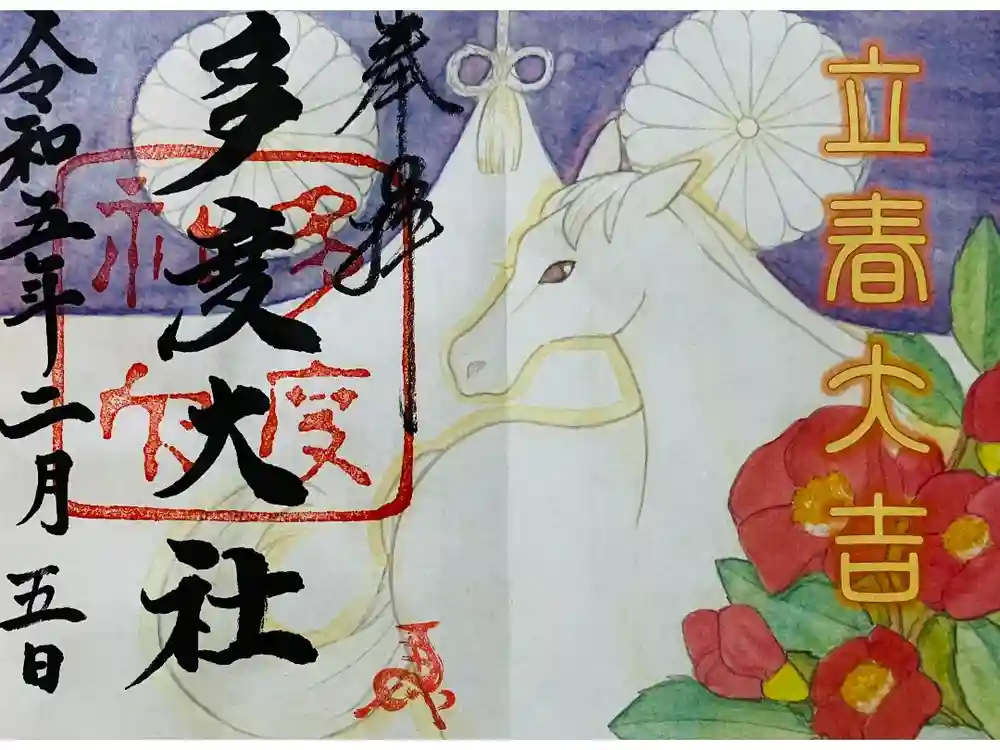 立春大吉
奉拝
多度大社
多度
神社
令和五年二月五日